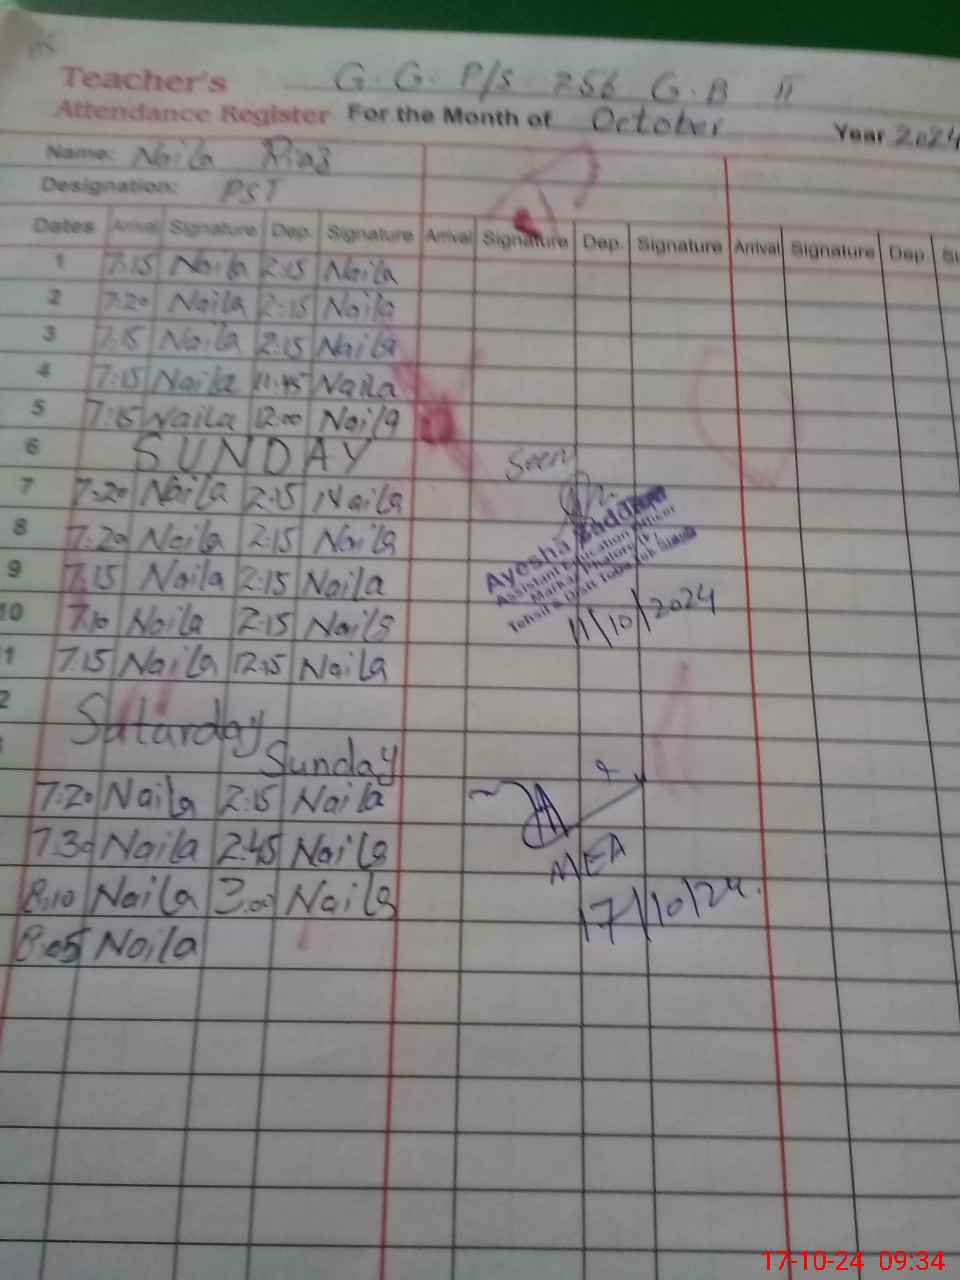 G.G. P/S 256 G.B II
Teacher's
Attendance Register For the Month of October Year 2024
Name: Naila Riaz
Designation: PST
Dates Arrival Signature Dep. Signature Arrival Signature Dep. Signature Arrival Signature Dep.
1 7:15 Naila 2:15 Naila
2 7:20 Naila 2:15 Naila
3 7:15 Naila 2:15 Naila
4 7:15 Naila 11:45 Naila
5 7:15 Naila 12:00 Naila
6 SUNDAY
Seen
7 7:20 Naila 2:15 Naila
8 7:20 Naila 2:15 Naila
9 7:15 Naila 2:15 Naila
10 7:10 Naila 2:15 Naila
1 7:15 Naila 12:15 Naila
Ayesha
Assistant Education Officer
11/10/2024
2 Saturday
Sunday
7:20 Naila 2:15 Naila
7:30 Naila 2:45 Naila
8:10 Naila 3:00 Naila
8:05 Naila
MEA
17/10/24.
17-10-24 09:34